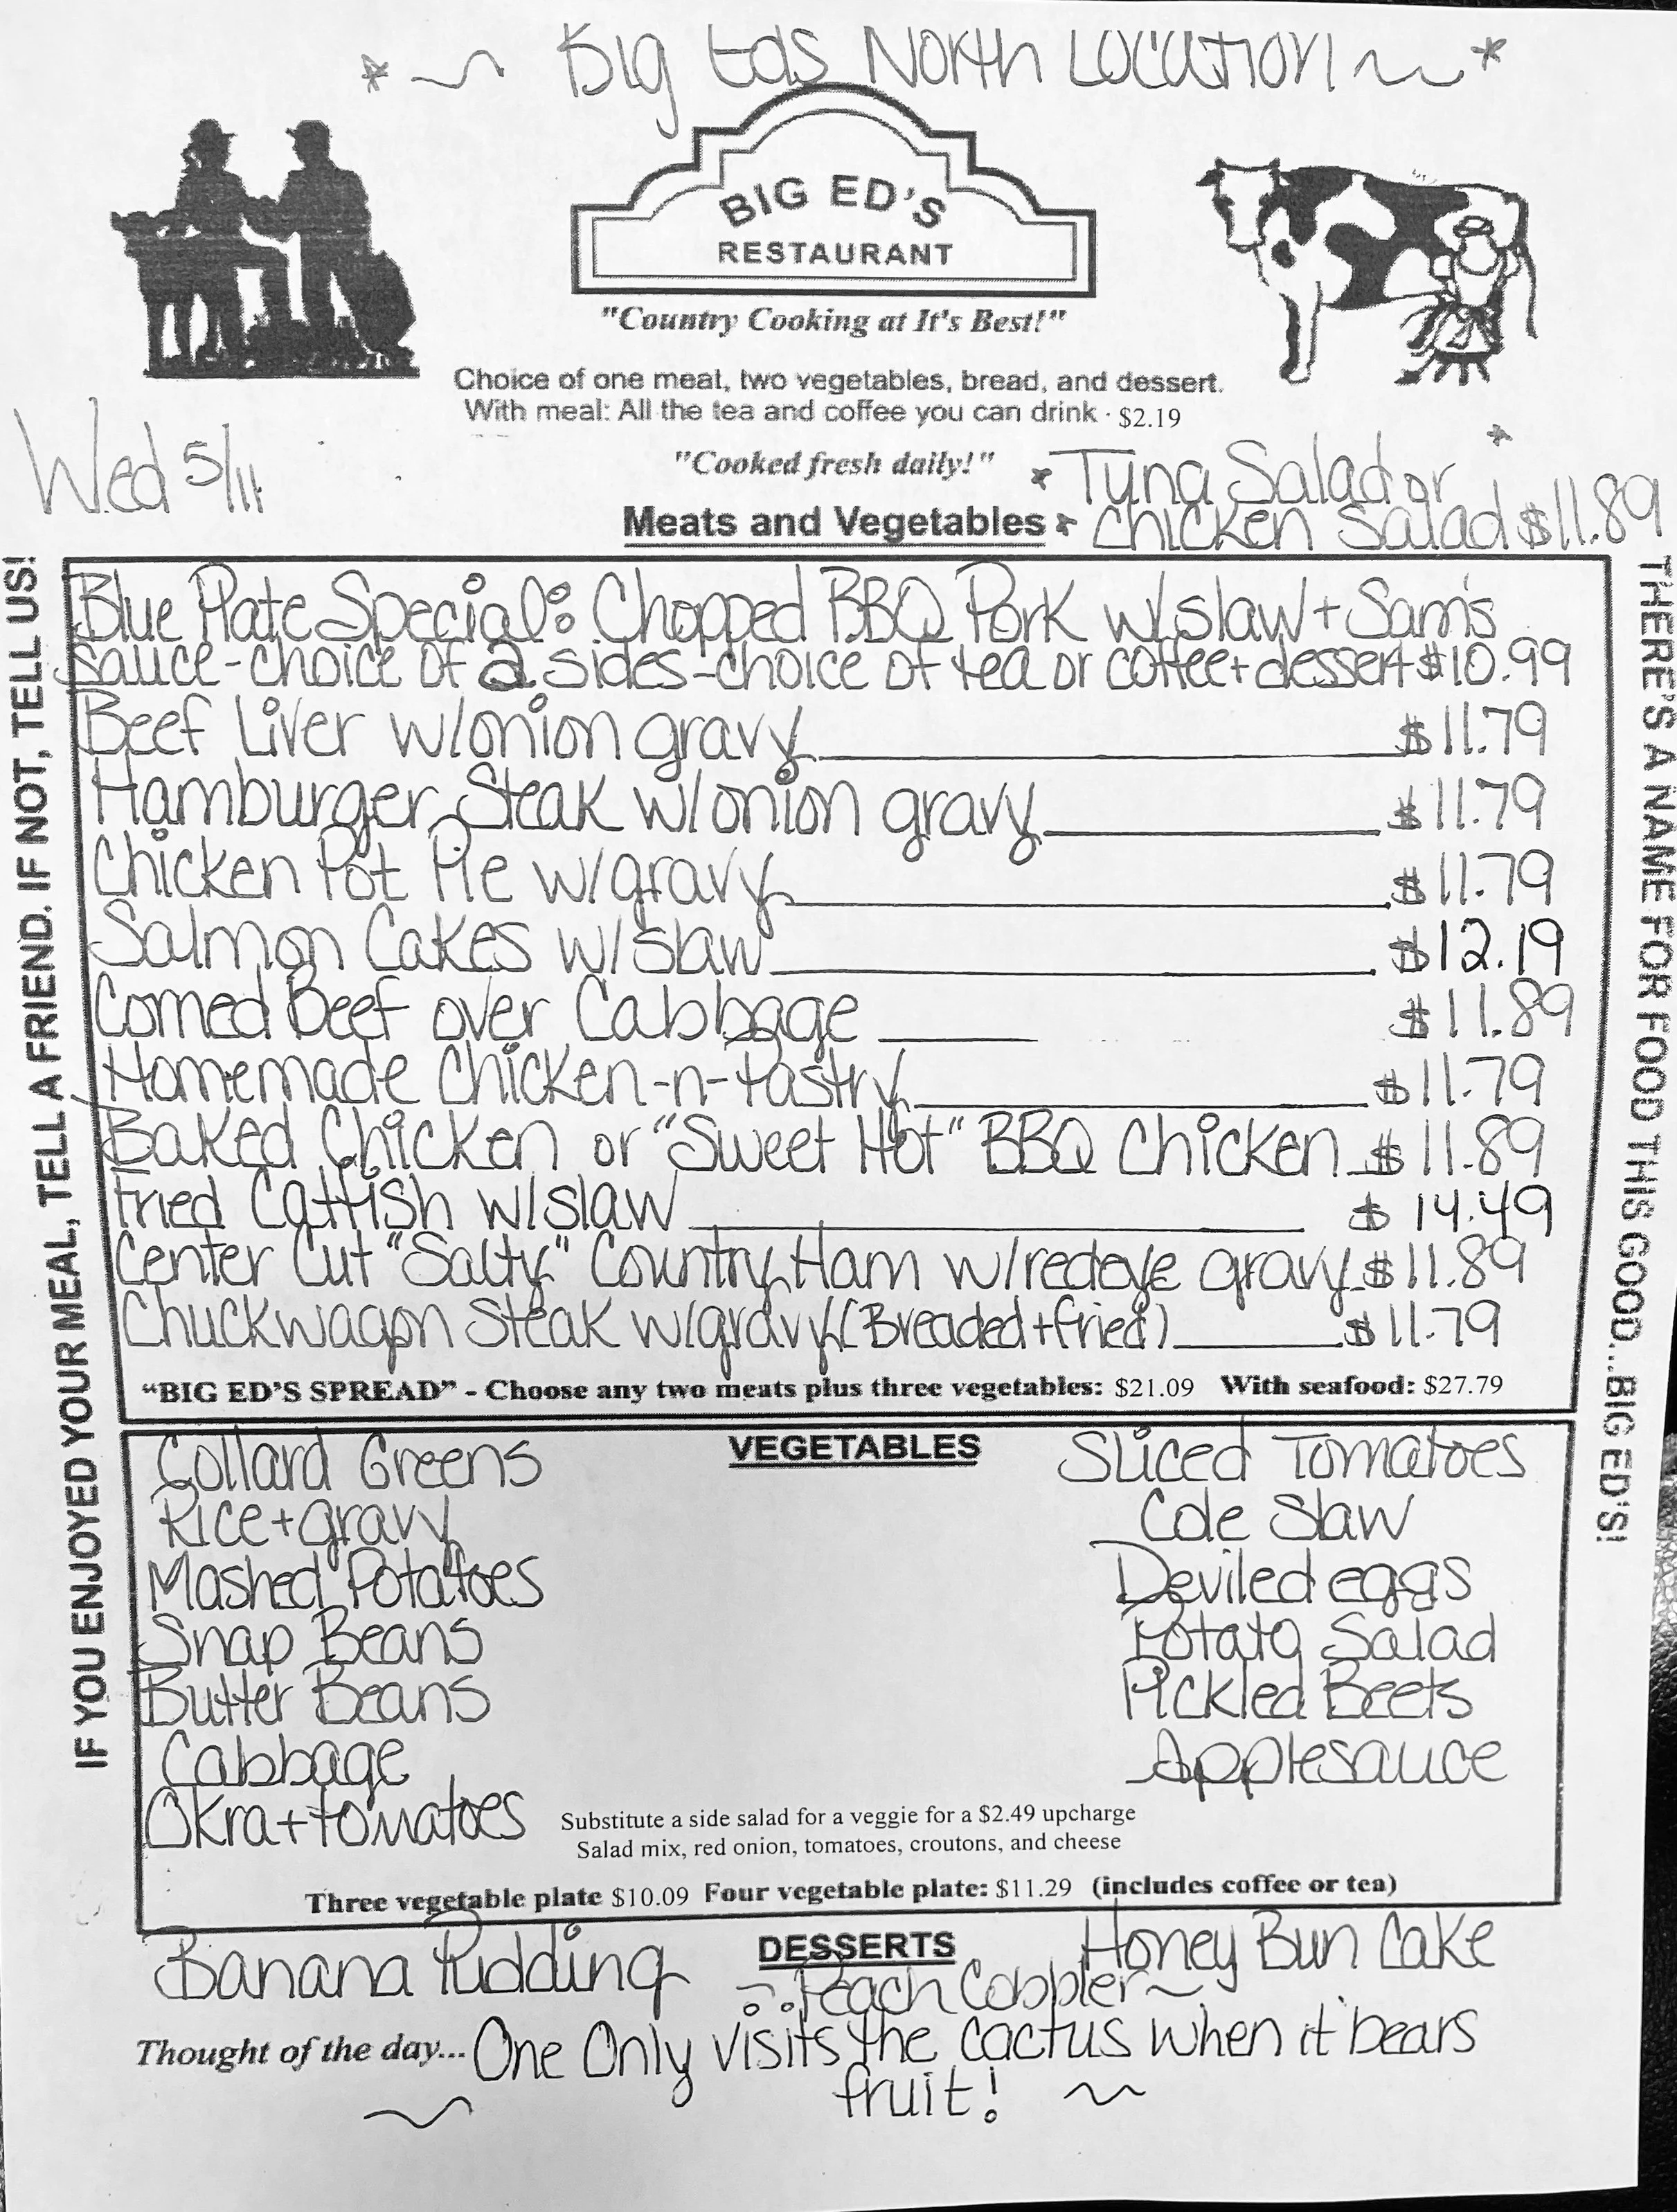 * ~ Big Eds North Location ~ *
BIG ED'S
RESTAURANT
"Country Cooking at It's Best!"
Choice of one meat, two vegetables, bread, and dessert.
With meal: All the tea and coffee you can drink · $2.19
Wed 5/11
"Cooked fresh daily!"
* Tuna Salad or *
Meats and Vegetables
* Chicken Salad $11.89
IF YOU ENJOYED YOUR MEAL, TELL A FRIEND. IF NOT, TELL US!
THERE'S A NAME FOR FOOD THIS GOOD...BIG ED'S!
Blue Plate Special: Chopped BBQ Pork w/slaw + Sam's
sauce-choice of 2 sides-choice of tea or coffee+dessert $10.99
Beef Liver w/onion gravy $11.79
Hamburger Steak w/onion gravy $11.79
Chicken Pot Pie w/gravy $11.79
Salmon Cakes w/slaw $12.19
Corned Beef over Cabbage $11.89
Homemade Chicken-n-Pastry $11.79
Baked Chicken or "Sweet Hot" BBQ Chicken $11.89
Fried Catfish w/slaw $14.49
Center Cut "Salty" Country Ham w/redeye gravy $11.89
Chuckwagon Steak w/gravy (Breaded+fried) $11.79
"BIG ED'S SPREAD" - Choose any two meats plus three vegetables: $21.09 With seafood: $27.79
VEGETABLES
Collard Greens
Rice+gravy
Mashed Potatoes
Snap Beans
Butter Beans
Cabbage
Okra+tomatoes
Sliced Tomatoes
Cole Slaw
Deviled eggs
Potato Salad
Pickled Beets
Applesauce
Substitute a side salad for a veggie for a $2.49 upcharge
Salad mix, red onion, tomatoes, croutons, and cheese
Three vegetable plate $10.09 Four vegetable plate: $11.29 (includes coffee or tea)
DESSERTS
Banana Pudding
Honey Bun Cake
~ Peach Cobbler ~
Thought of the day... One Only visits the cactus when it bears
fruit!